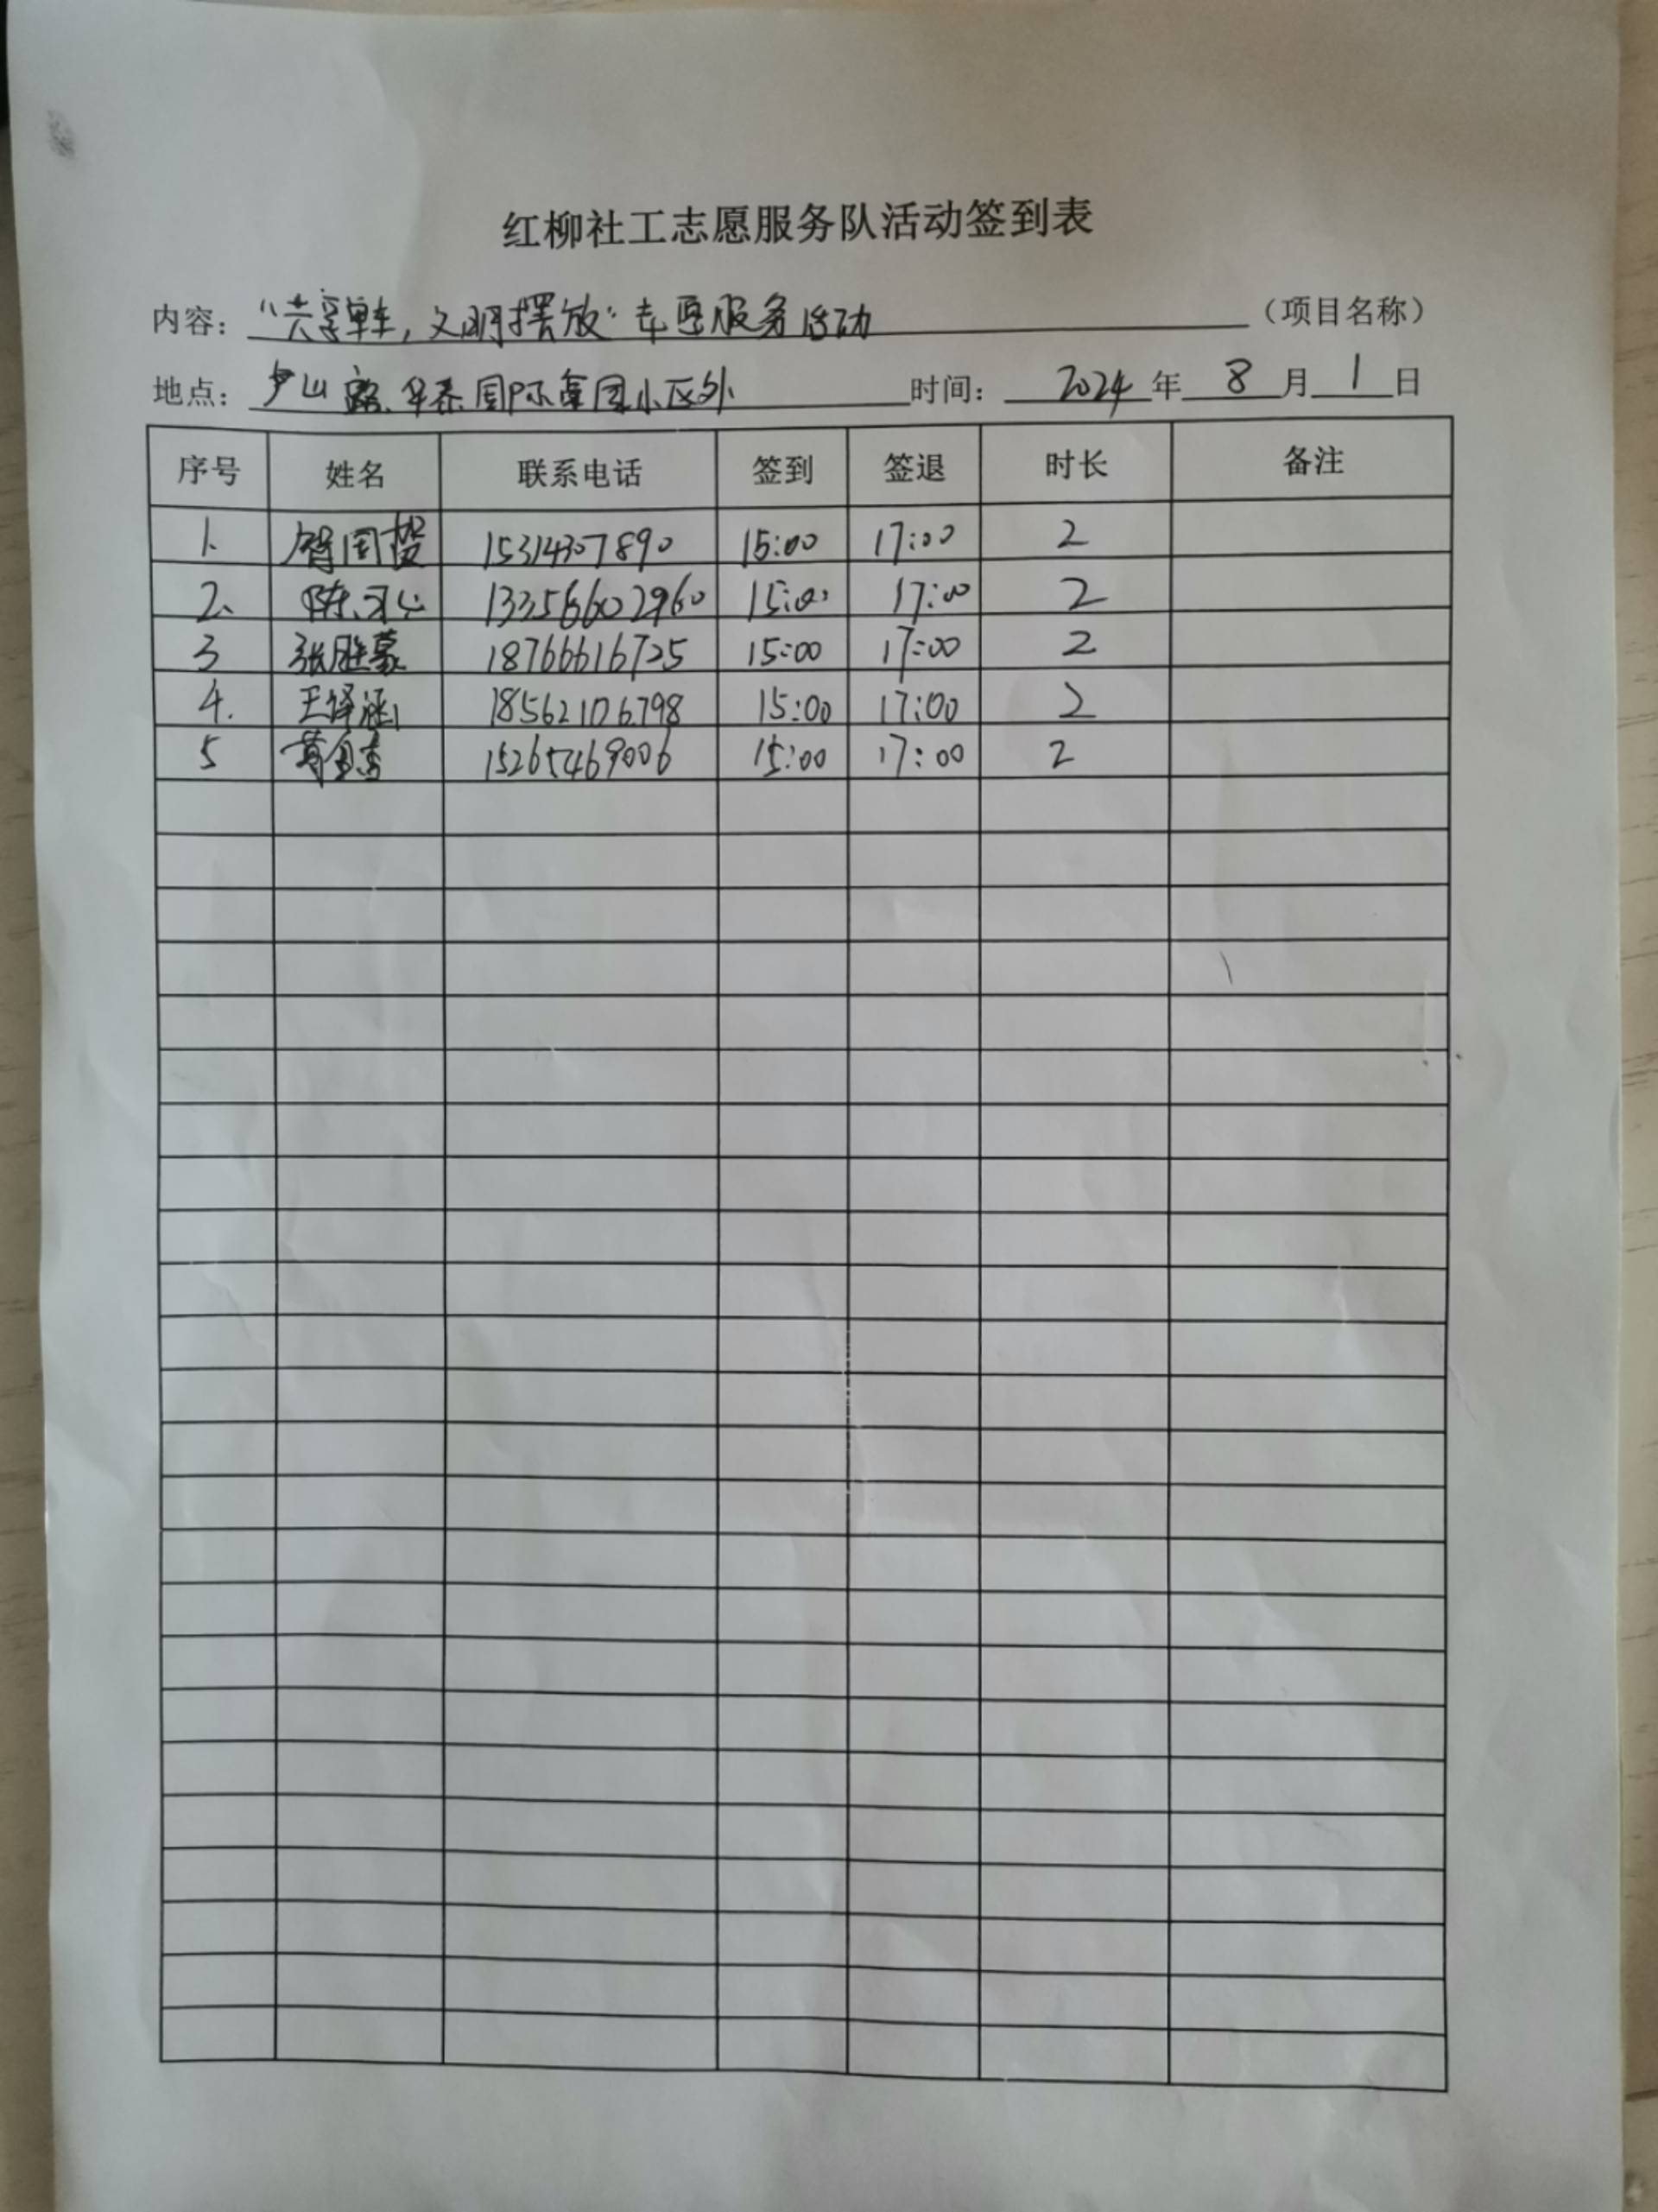 红柳社工志愿服务队活动签到表
内容：“共享单车，文明摆放”志愿服务活动（项目名称）
地点：庐山路华泰国际集团小区外 时间：2024年8月1日
序号 姓名 联系电话 签到 签退 时长 备注
1. 国 15314307890 15:00 17:00 2
2. 陈 13356602960 15:00 17:00 2
3 张胜豪 18766616725 15:00 17:00 2
4. 王译涵 18562106798 15:00 17:00 2
5 15265469006 15:00 17:00 2